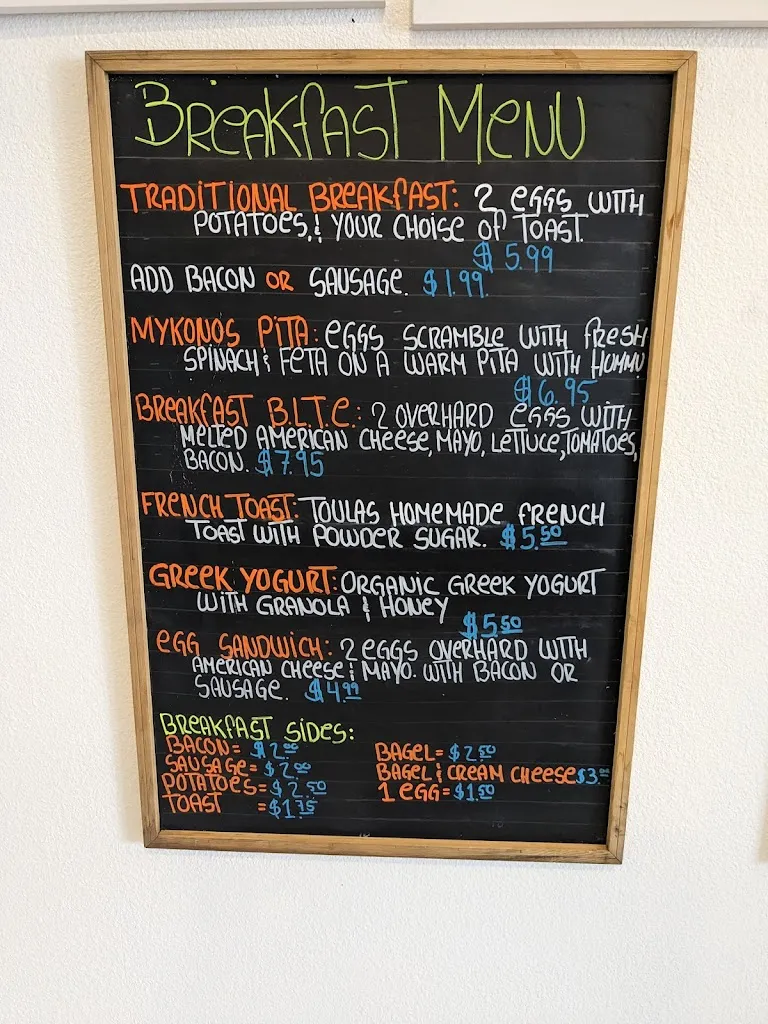 Breakfast Menu
Traditional Breakfast: 2 eggs with
potatoes, & your choise of toast.
$5.99
Add bacon or sausage. $1.99
Mykonos Pita: eggs scramble with fresh
spinach & feta on a warm pita with hummu
$6.95
Breakfast B.L.T.E.: 2 overhard eggs with
melted American cheese, mayo, lettuce, tomatoes,
bacon. $7.95
French Toast: Toulas homemade french
toast with powder sugar. $5.50
Greek Yogurt: organic greek yogurt
with granola & honey
$5.50
Egg Sandwich: 2 eggs overhard with
American cheese & mayo. with bacon or
sausage. $4.99
Breakfast Sides:
Bacon = $2.00 Bagel = $2.50
Sausage = $2.00 Bagel & cream cheese $3.00
Potatoes = $2.50 1 egg = $1.50
Toast = $1.75